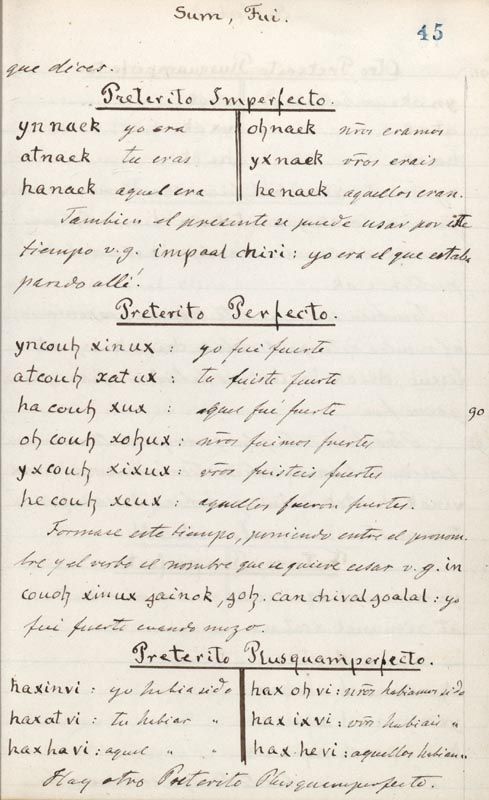 Sum, Fui.
45
que dices.
Preterito Imperfecto.
ynnaek yo era
atnaek tu eras
hanaek aquel era
oħnaek nr̃os eramos
yxnaek vr̃os erais
henaek aquellos eran.
Tambien el presente se puede usar por este
tiempo v.g. impaal chiri: yo era el que estaba
parado allé.
Preterito Perfecto.
yncouꜩ xinux yo fui fuerte
atcouꜩ xatux: tu fuiste fuerte
ha couꜩ xux: aquel fué fuerte
90
oħ couꜩ xoꜩux: nr̃os fuimos fuertes
yxcouꜩ xixux: vr̃os fuisteis fuertes
he couꜩ xeux: aquellos fueron fuertes.
Formase este tiempo, poniendo entre el pronom-
bre y el verbo el nombre que se quiere usar v.g. in
couꜩ xinux can chival goalal: yo
fui fuerte cuando mozo.
Preterito Plusquamperfecto.
haxinvi: yo habia sido
haxatvi: tu habias "
haxhavi: aquel " "
hax oħ vi: nr̃os habiamos sido
hax ixvi: vr̃os habiais "
hax hevi: aquellos habian "
Hay otro Preterito Plusquamperfecto.